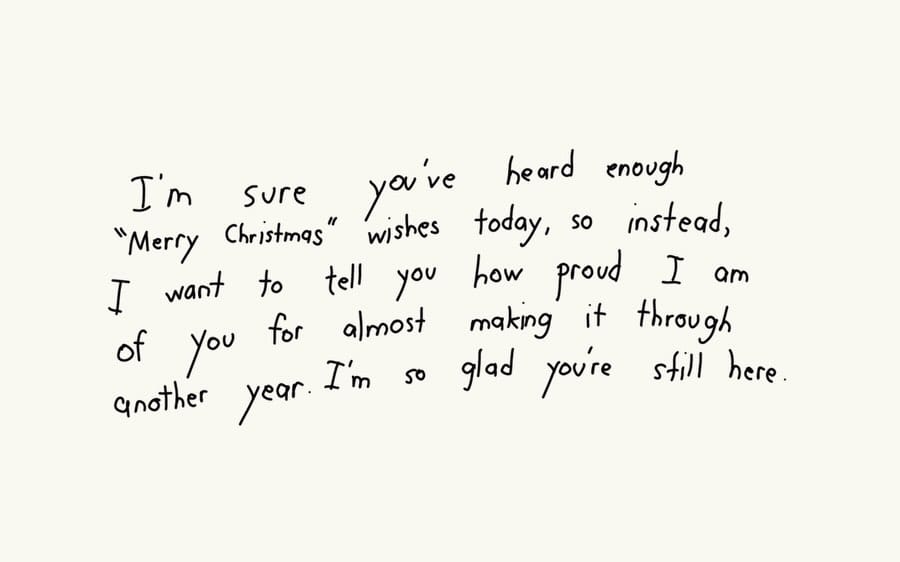 I'm sure you've heard enough
"Merry Christmas" wishes today, so instead,
I want to tell you how proud I am
of you for almost making it through
another year. I'm so glad you're still here.